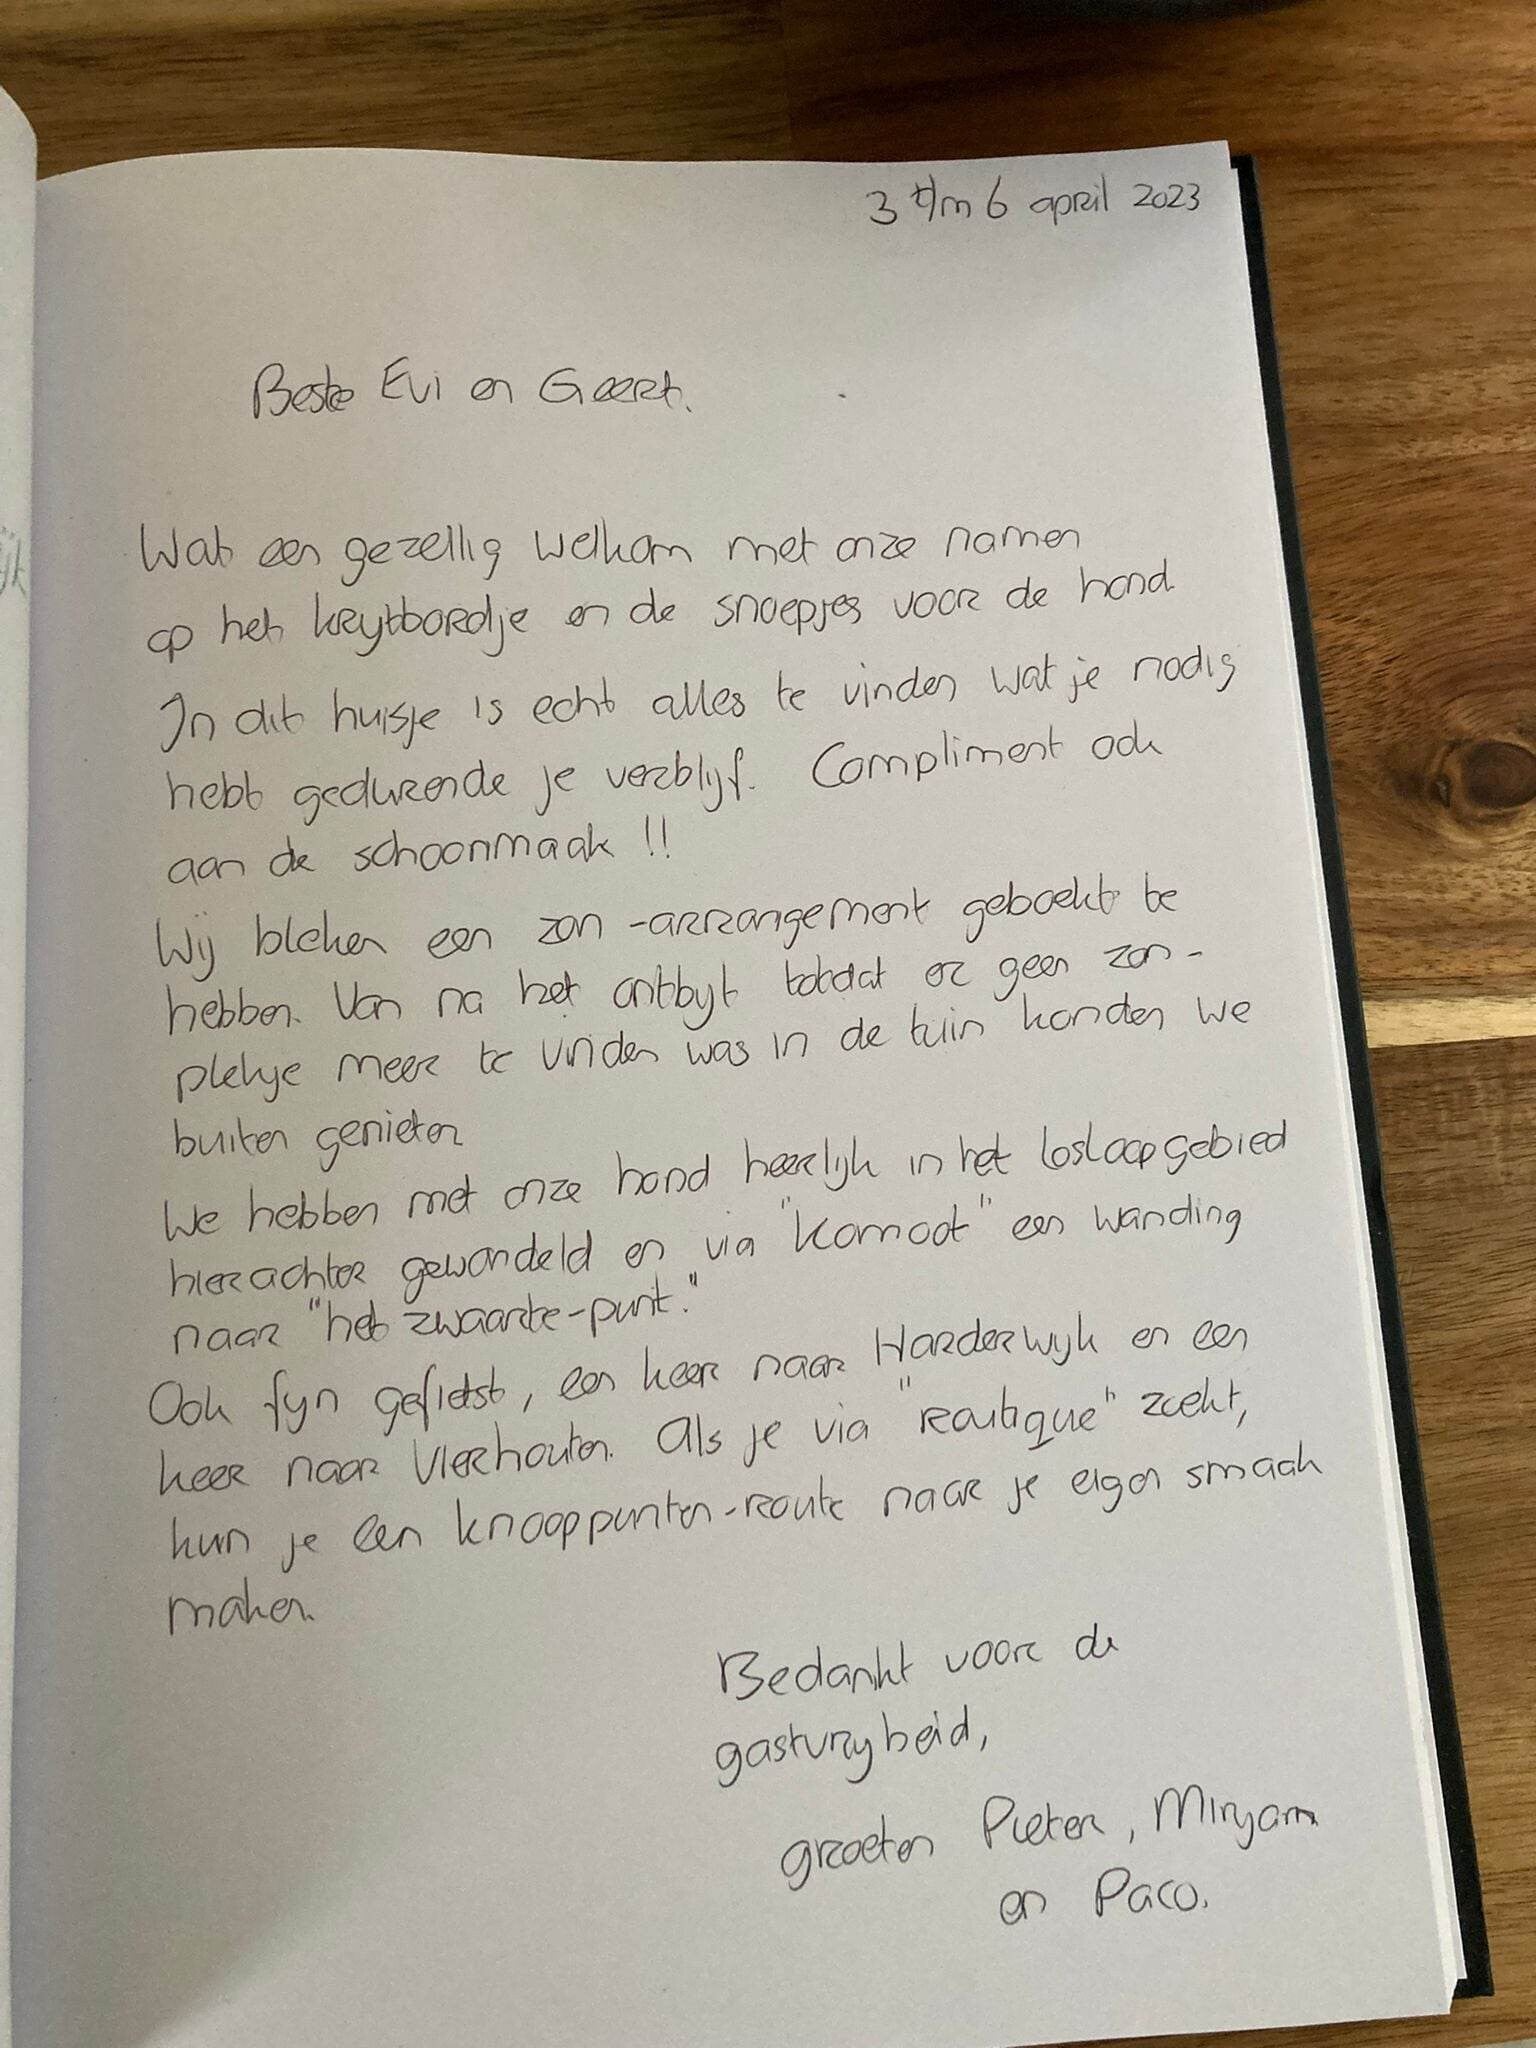 3 t/m 6 april 2023
Beste Evi en Geert.
Wat een gezellig welkom met onze namen
op het krijtbordje en de snoepjes voor de hond.
In dit huisje is echt alles te vinden wat je nodig
hebt gedurende je verblijf. Compliment ook
aan de schoonmaak !!
Wij bleken een zon-arrangement geboekt te
hebben. Van na het ontbijt totdat er geen zon-
plekje meer te vinden was in de tuin konden we
buiten genieten
We hebben met onze hond heerlijk in het losloopgebied
hierachter gewandeld en via "Komoot" een wandling
naar "het zwaarte-punt."
Ook fijn gefietst, een keer naar Harderwijk en een
keer naar Vierhouten. Als je via "routique" zoekt,
kun je een knooppunten-route naar je eigen smaak
maken.
Bedankt voor de
gastvrijheid,
groeten Pieter, Mirjam
en Paco.